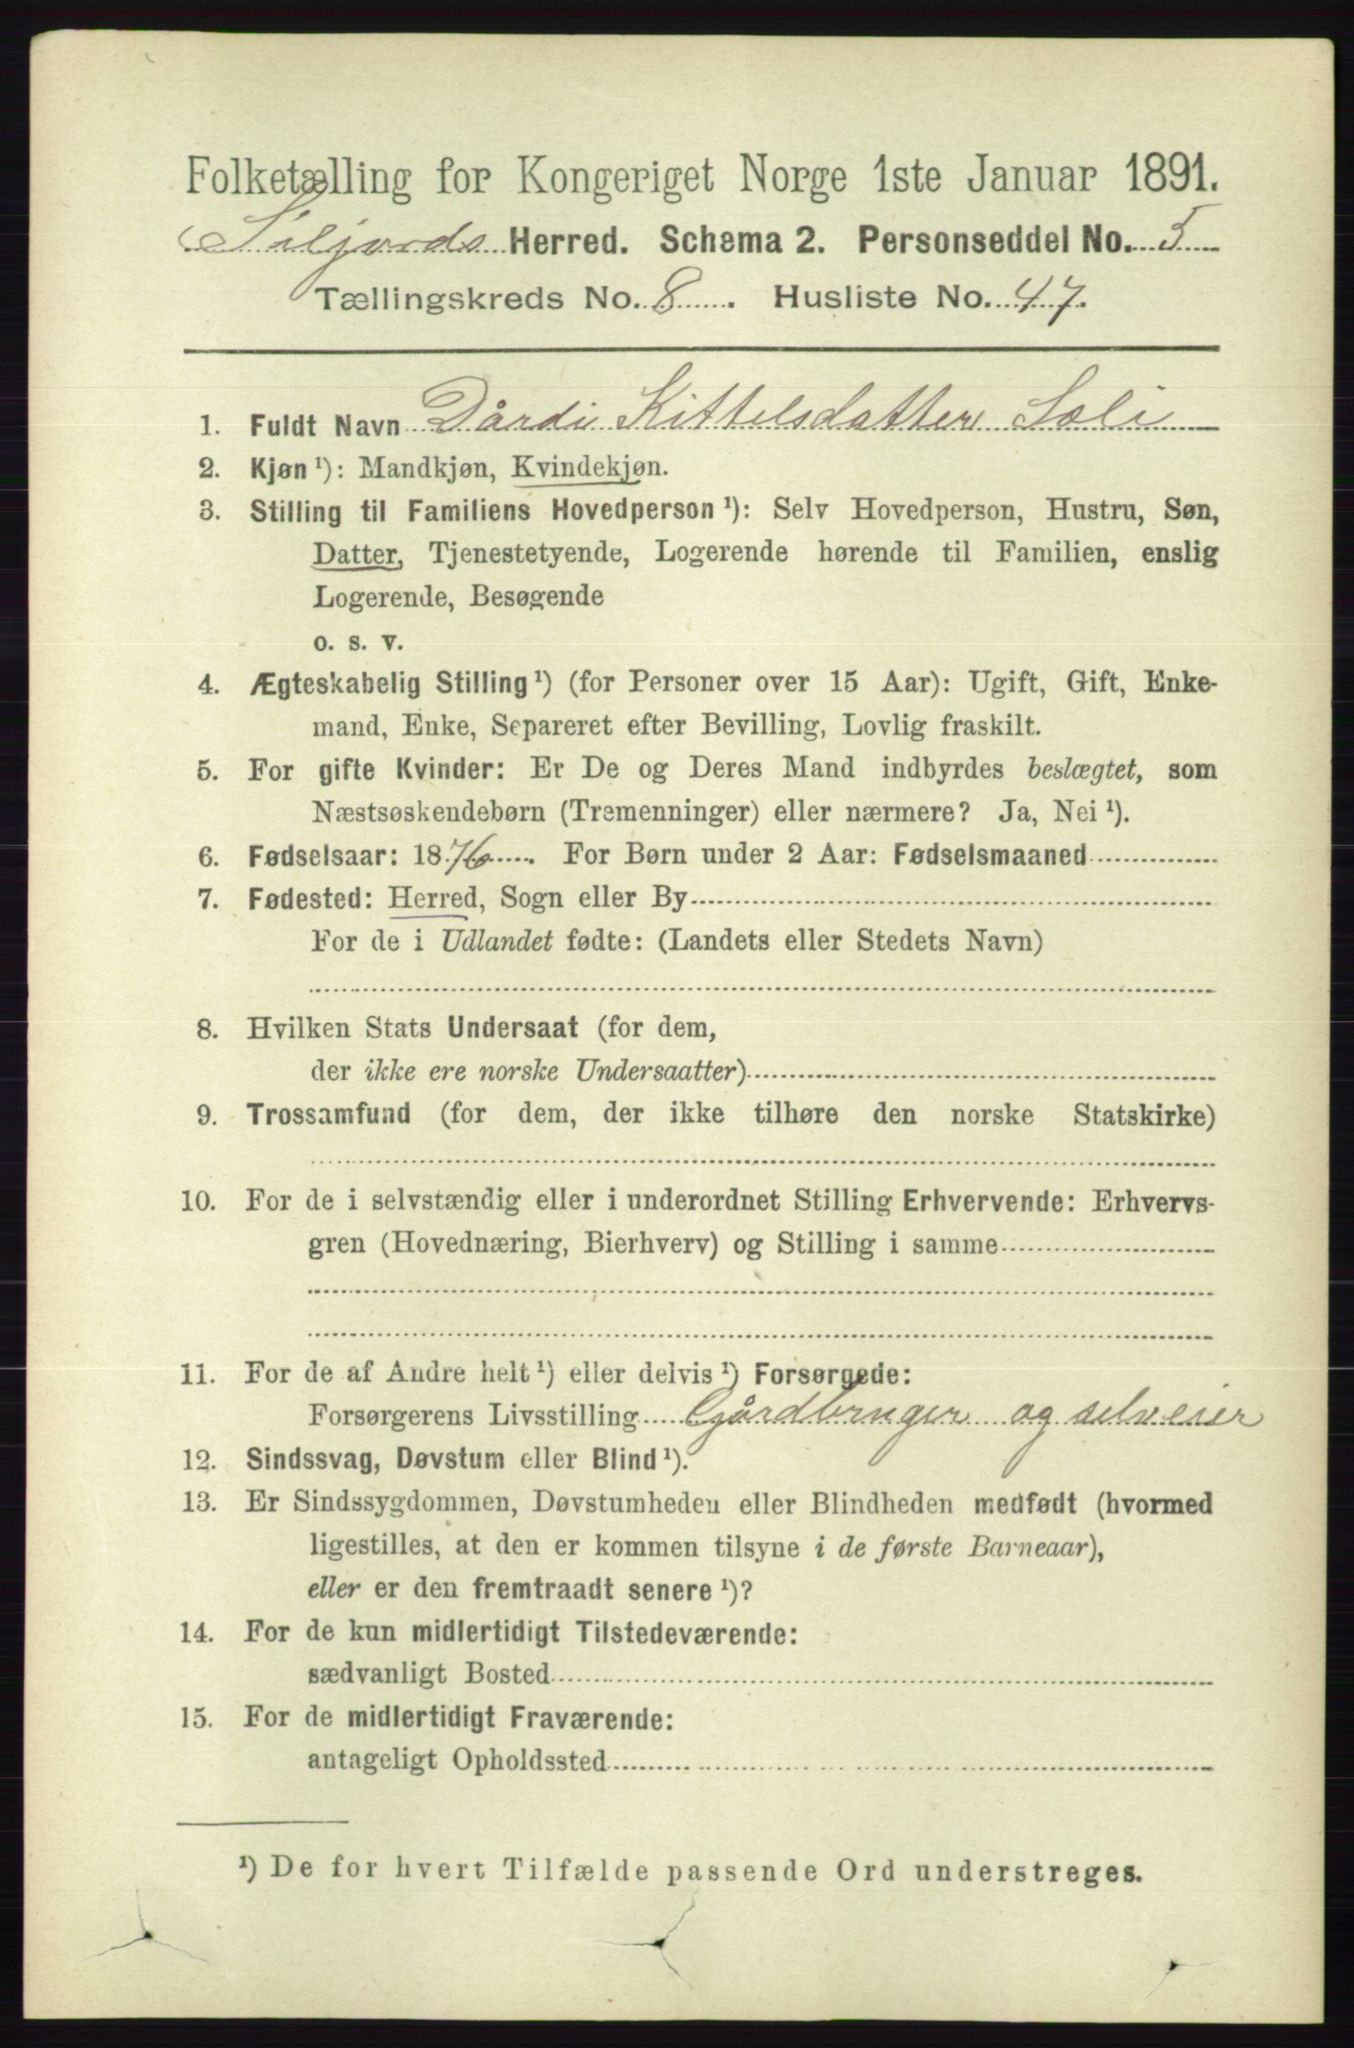 Folketælling for Kongeriget Norge 1ste Januar 1891.
Siljords Herred. Schema 2. Personseddel No. 5
Tællingskreds No. 8. Husliste No. 47.
1. Fuldt Navn Dårdi Kittelsdatter Soli
2. Kjøn ¹): Mandkjøn, Kvindekjøn.
3. Stilling til Familiens Hovedperson ¹): Selv Hovedperson, Hustru, Søn,
Datter, Tjenestetyende, Logerende hørende til Familien, enslig
Logerende, Besøgende
o. s. v.
4. Ægteskabelig Stilling ¹) (for Personer over 15 Aar): Ugift, Gift, Enke-
mand, Enke, Separeret efter Bevilling, Lovlig fraskilt.
5. For gifte Kvinder: Er De og Deres Mand indbyrdes beslægtet, som
Næstsøskendebørn (Tremenninger) eller nærmere? Ja, Nei ¹).
6. Fødselsaar: 1876. For Børn under 2 Aar: Fødselsmaaned
7. Fødested: Herred, Sogn eller By
For de i Udlandet fødte: (Landets eller Stedets Navn)
8. Hvilken Stats Undersaat (for dem,
der ikke ere norske Undersaatter)
9. Trossamfund (for dem, der ikke tilhøre den norske Statskirke)
10. For de i selvstændig eller i underordnet Stilling Erhvervende: Erhvervs-
gren (Hovednæring, Bierhverv) og Stilling i samme
11. For de af Andre helt ¹) eller delvis ¹) Forsørgede:
Forsørgerens Livsstilling Gårdbruger og selveier
12. Sindssvag, Døvstum eller Blind ¹).
13. Er Sindssygdommen, Døvstumheden eller Blindheden medfødt (hvormed
ligestilles, at den er kommen tilsyne i de første Barneaar),
eller er den fremtraadt senere ¹)?
14. For de kun midlertidigt Tilstedeværende:
sædvanligt Bosted
15. For de midlertidigt Fraværende:
antageligt Opholdssted
¹) De for hvert Tilfælde passende Ord understreges.